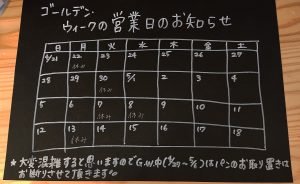 ゴールデン・
ウィークの営業日のお知らせ
日 月 火 水 木 金 土
4/21 22 23 24 25 26 27
休み
28 29 30 5/1 2 3 4
休み
5 6 7 8 9 10 11
休み
12 13 14 15 16 17 18
休み
★大変混雑すると思いますのでG.W中(4/27〜5/6)はパンのお取り置きは
お断りさせて頂きます。